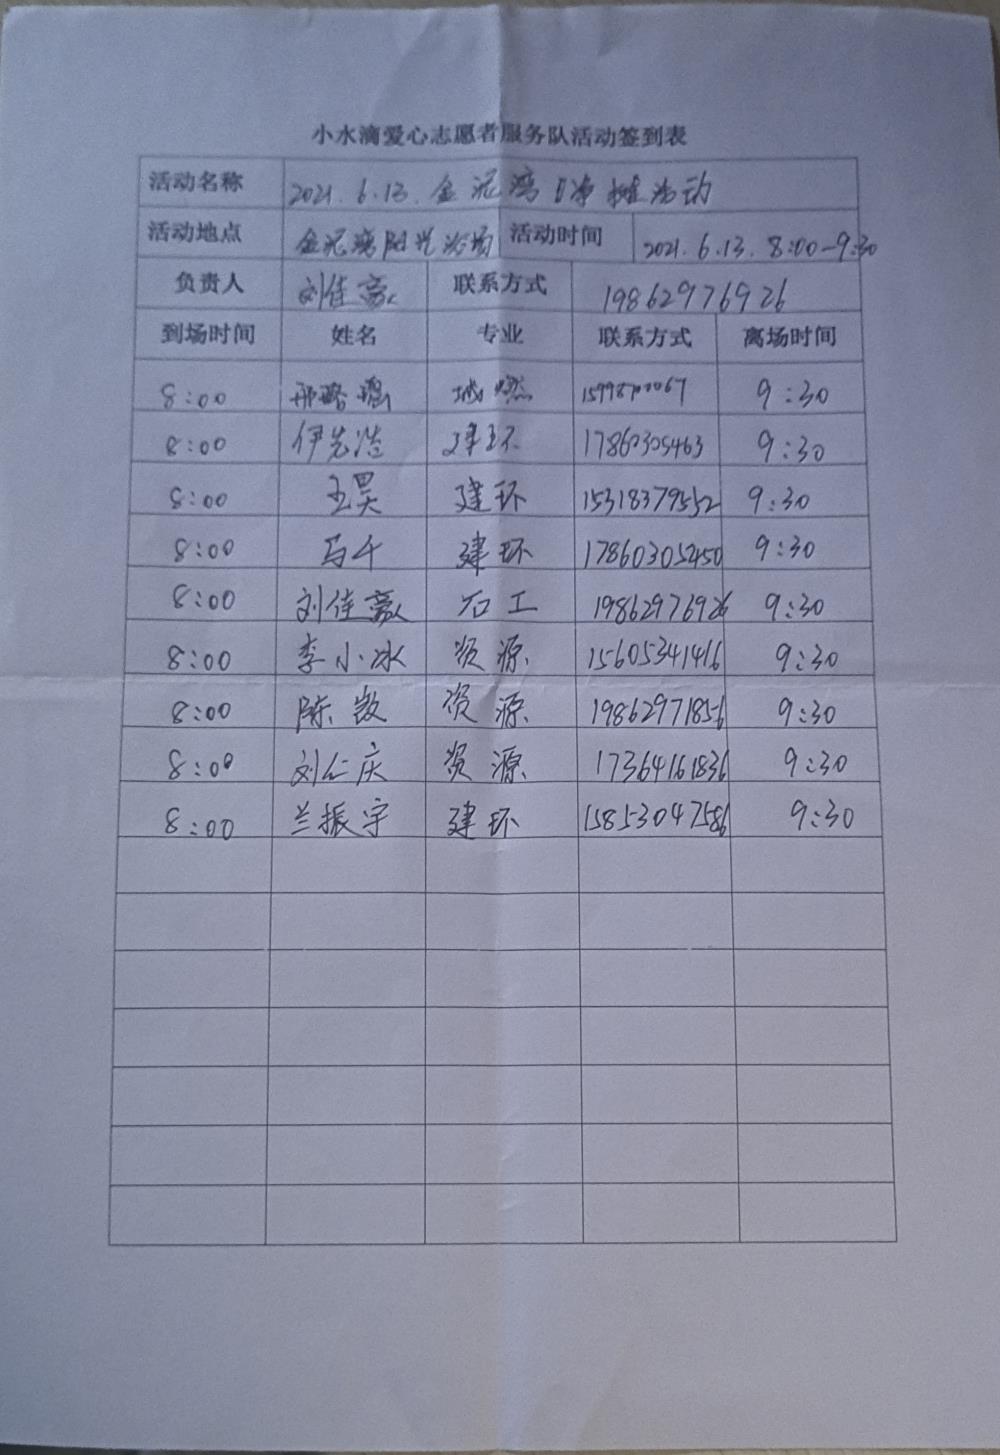 小水滴爱心志愿者服务队活动签到表
活动名称 2021.6.13.金泥湾净摊活动
活动地点 金泥湾阳光浴场 活动时间 2021.6.13. 8:00-9:30
负责人 刘佳豪 联系方式 19862976926
到场时间 姓名 专业 联系方式 离场时间
8:00 城燃 9:30
8:00 伊先浩 建环 17860305463 9:30
8:00 王昊 建环 15318379552 9:30
8:00 马千 建环 178603052450 9:30
8:00 刘佳豪 石工 19862976926 9:30
8:00 李小冰 资源 15605341416 9:30
8:00 陈数 资源 19862971856 9:30
8:00 刘仁庆 资源 17364161836 9:30
8:00 兰振宇 建环 15853047586 9:30